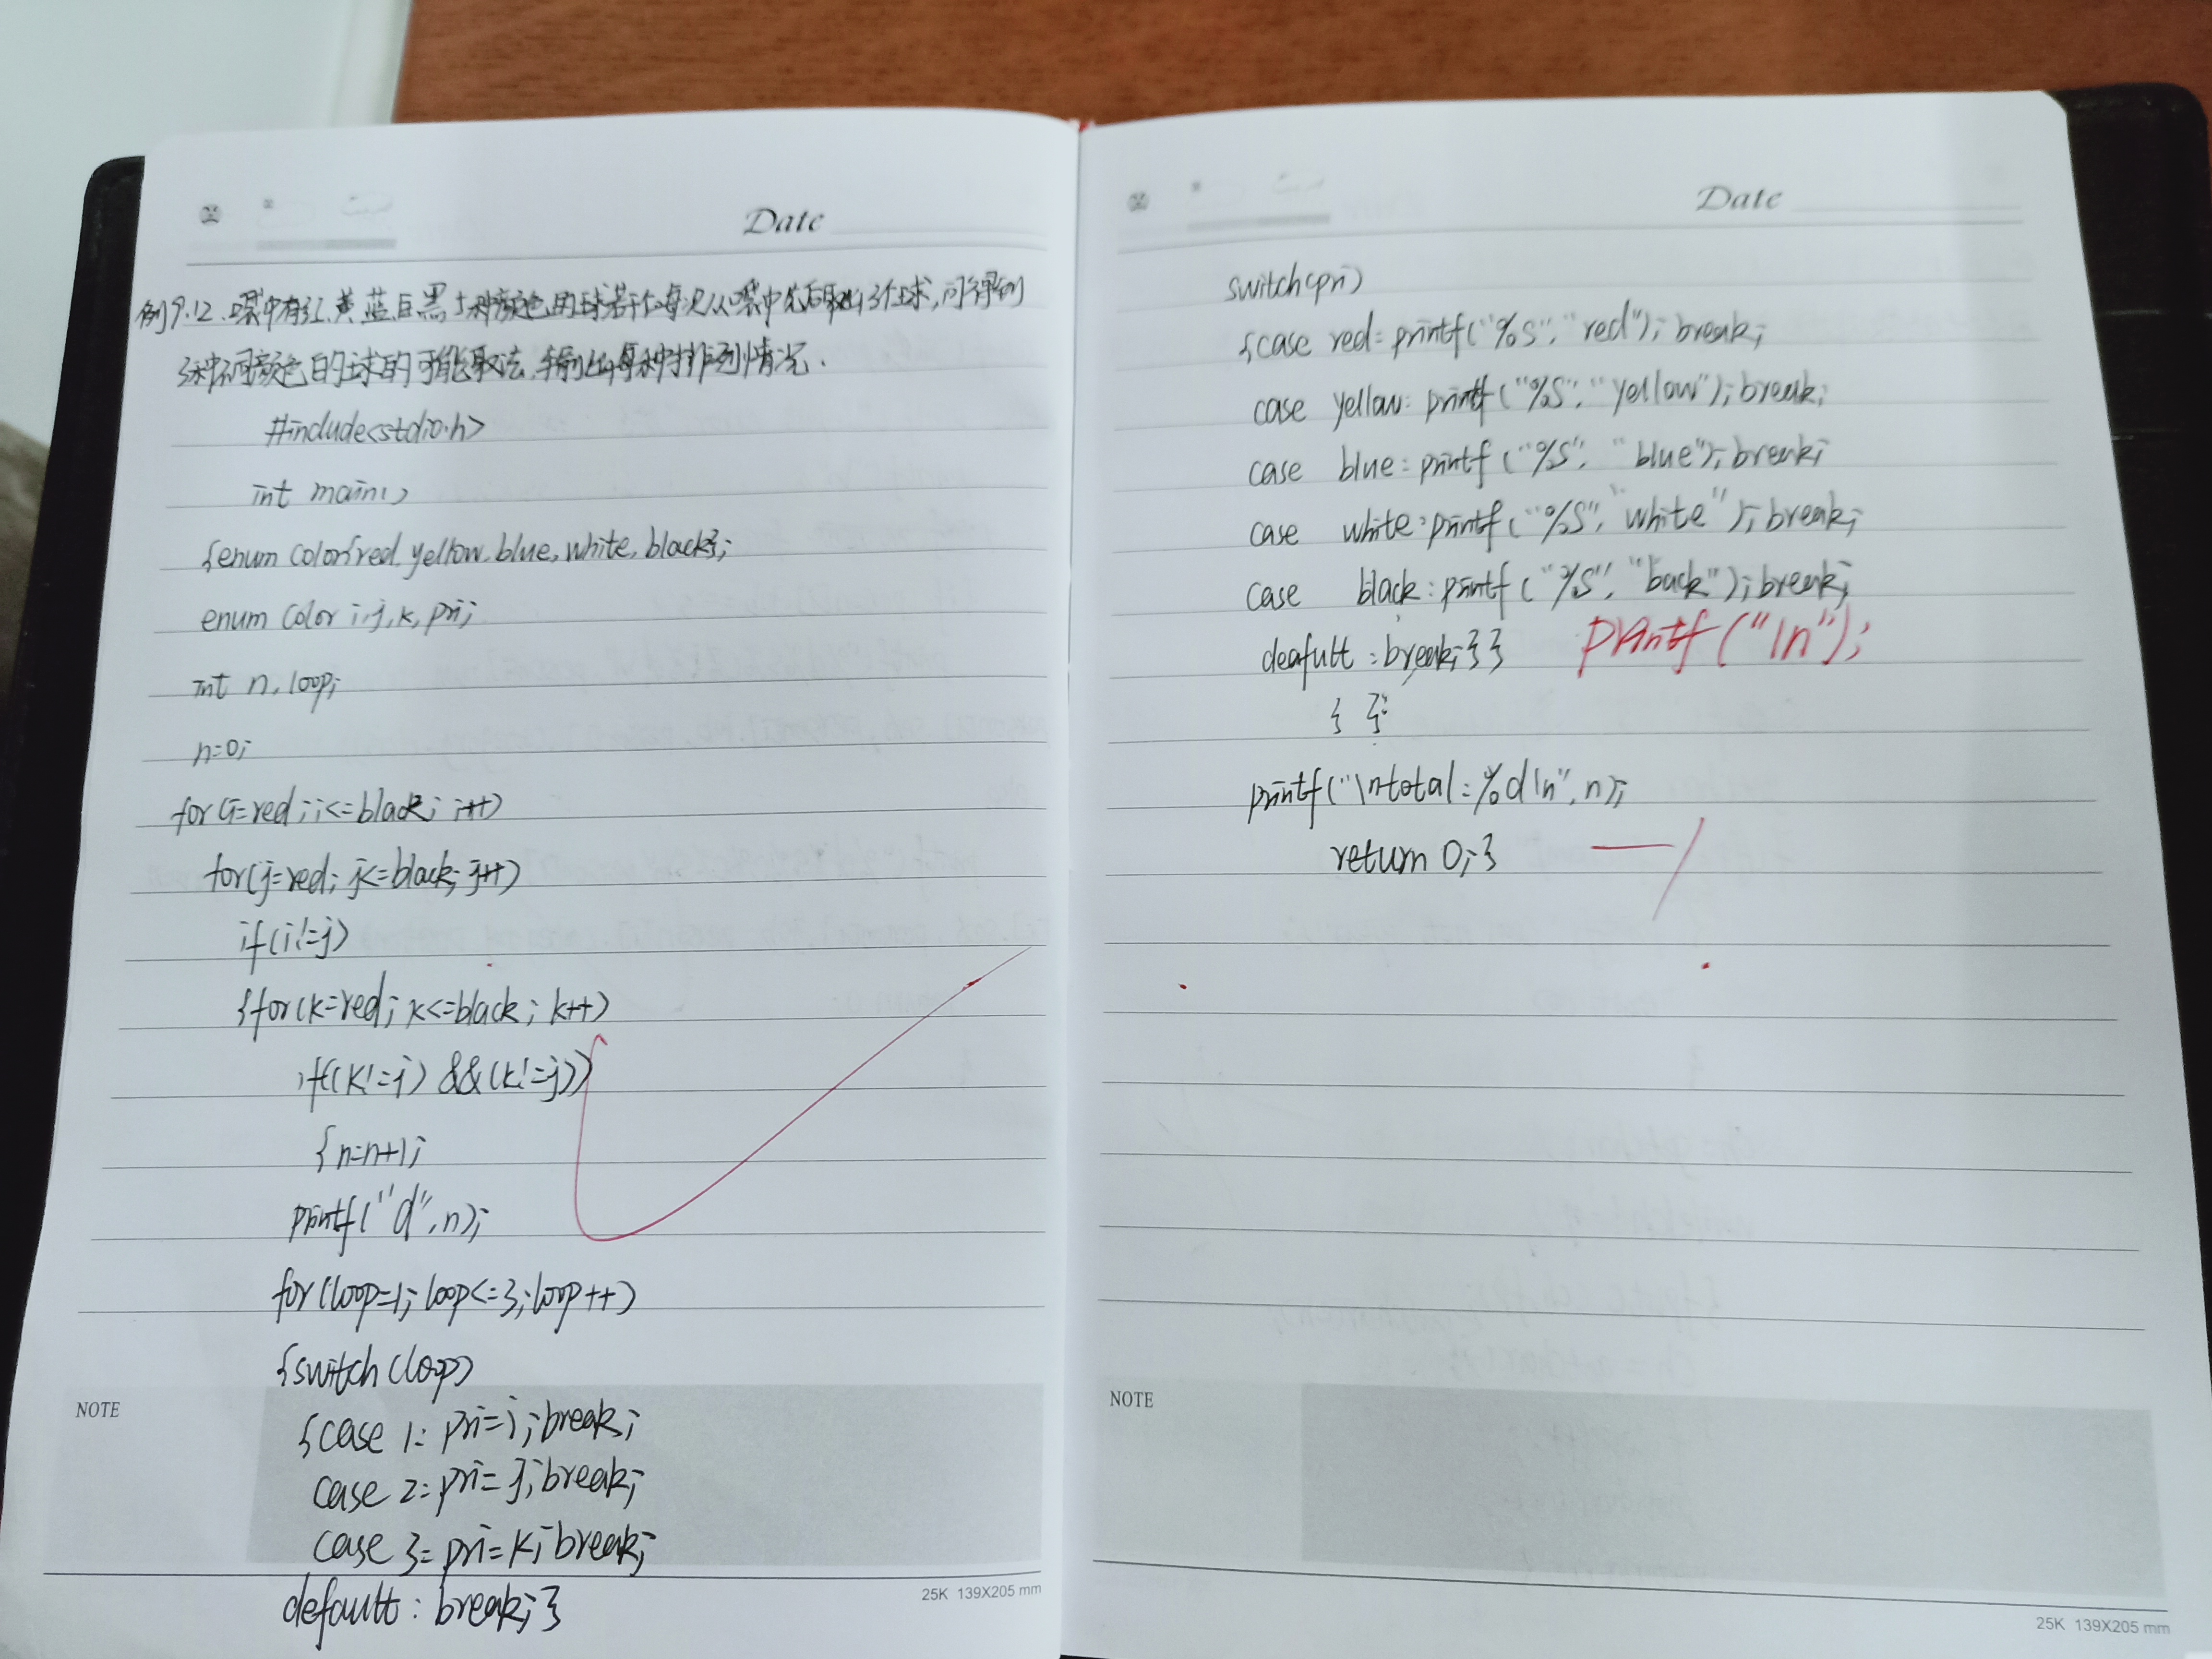 Date
例9.12.口袋中有红、黄、蓝、白、黑5种颜色的球若干个每次从口袋中先后取出3个球,问得到
3种不同颜色的球的可能取法,输出每种排列情况.
#include<stdio.h>
int main()
{enum color{red,yellow,blue,white,black};
enum color i,j,k,pri;
int n,loop;
n=0;
for(i=red;i<=black;i++)
for(j=red;j<=black;j++)
if(i!=j)
{for(k=red;k<=black;k++)
if((k!=i)&&(k!=j))
{n=n+1;
printf("d",n);
for(loop=1;loop<=3;loop++)
{switch(loop)
{case 1:pri=i;break;
case 2:pri=j;break;
NOTE
case 3:pri=k;break;
default:break;}
25K 139X205 mm
Date
switch(pri)
{case red:printf("%s","red");break;
case yellow:printf("%s","yellow");break;
case blue:printf("%s","blue");break;
case white:printf("%s","white");break;
case black:printf("%s","back");break;
deafult:break;}}
printf("\n");
} }
printf("\ntotal:%d\n",n);
return 0;}
NOTE
25K 139X205 mm